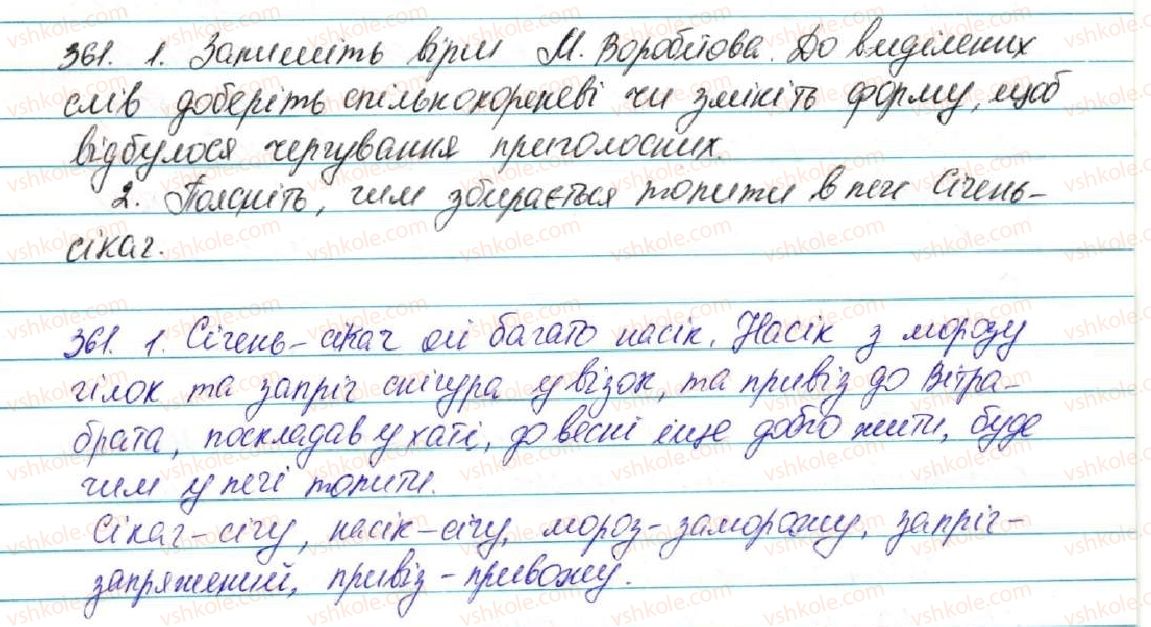 361. 1. Запишіть вірш М. Воробйова. До виділених
слів доберіть спільнокореневі чи змініть форму, щоб
відбулося чергування приголосних.
2. Поясніть, чим збирається топити в печі Січень-
сікач.
361. 1. Січень-сікач ой багато насік. Насік з морозу
гілок та запріг снігура у візок, та привіз до Вітра-
брата, поскладав у хаті, до весни іще довго жити, буде
чим у печі топити.
Сікач-січу, насік-січу, мороз-заморожу, запріг-
запряжений, привіз-привожу.